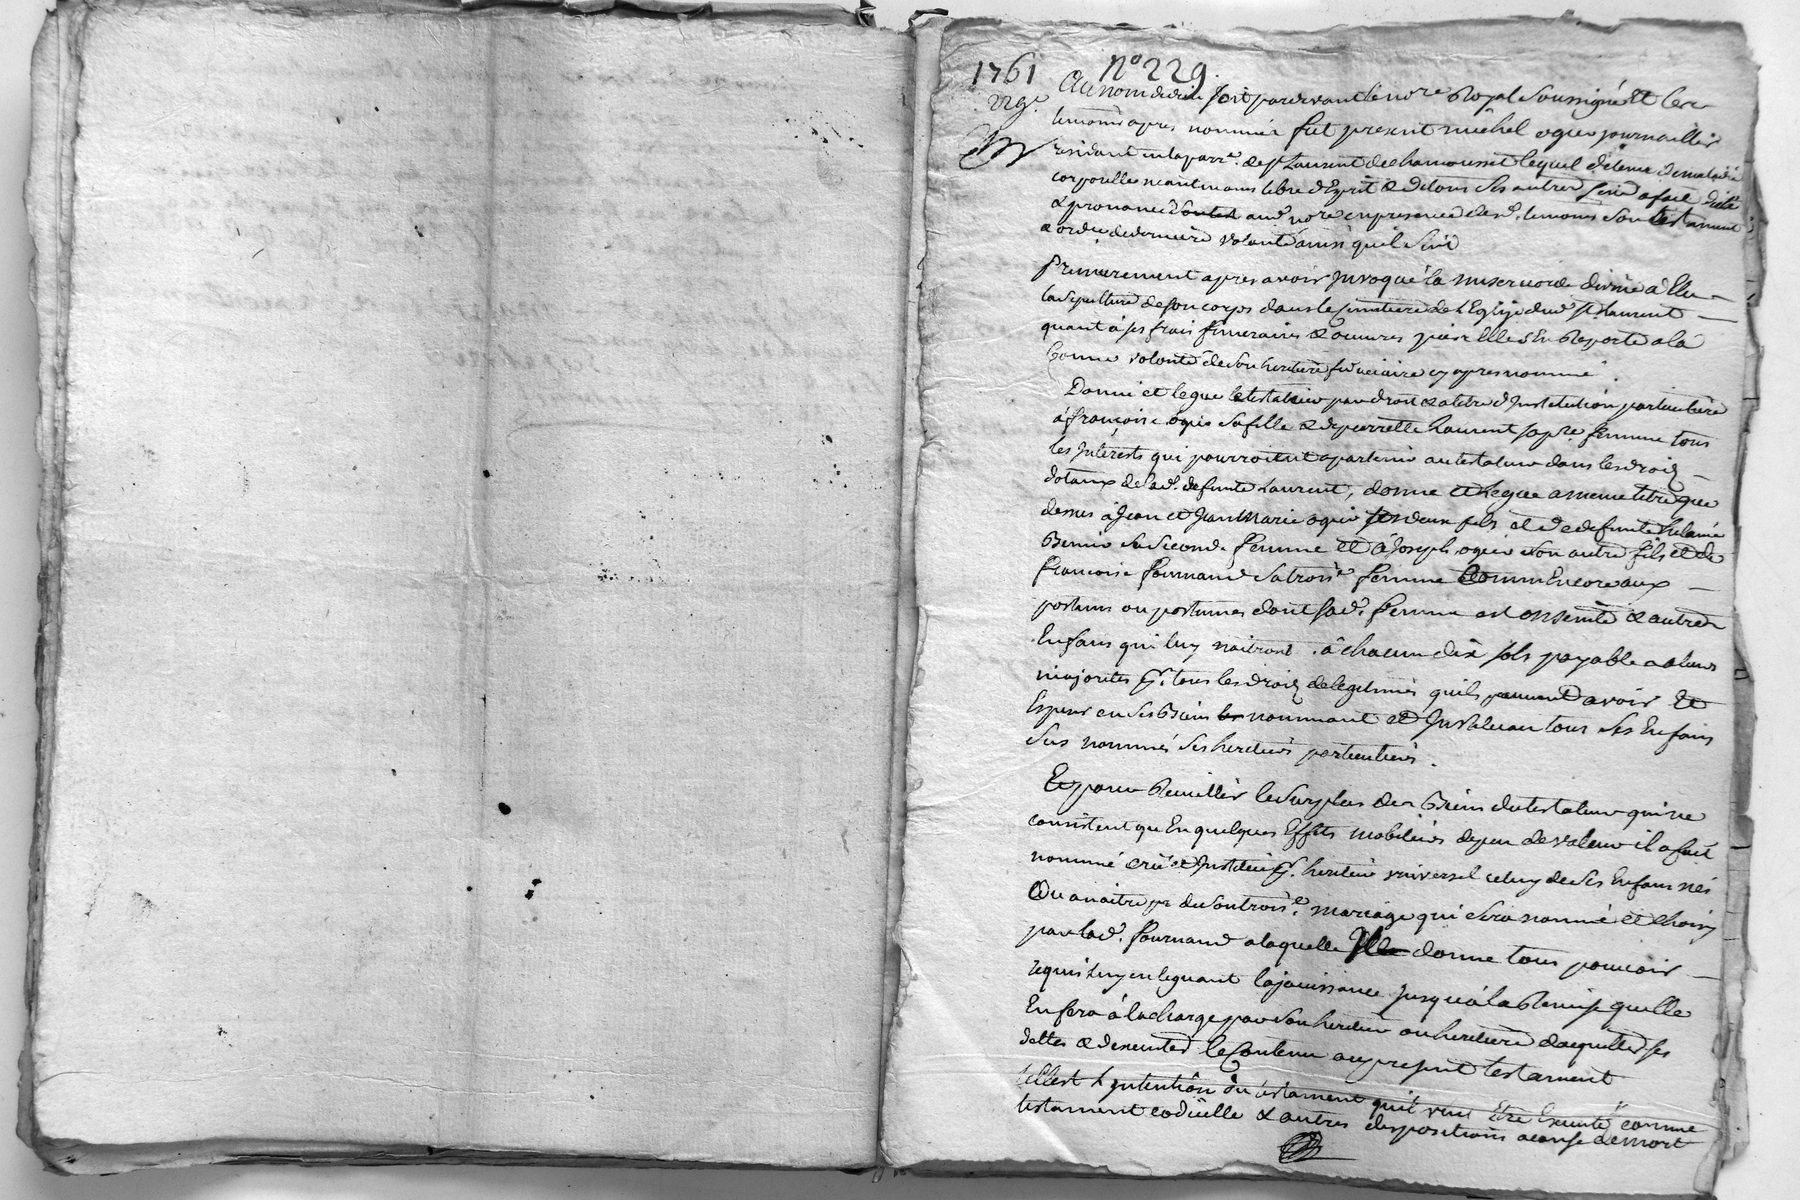 1761 N° 229.
229e
Au nom de dieu soit pardevant le no.re Royal Soussigné Et les
temoins apres nommés fut present michel ogier journaillier
residant en la parr.e de St Laurent de chamousset lequel detenu de maladie
corporelle neantmoins libre d'Esprit & de tous ses autres sens a fait dicté
& prononcé aud. no.re en presence desd. temoins son testament
& ordre de derniere volonté ainsi quil suit
Premierement apres avoir Invoqué la misericorde divine a Elu
la Sepulture de son corps dans le cimetiere de l'Eglise dud. St Laurent
quant à ses frais funeraires & oeuvres pies Il s'En Raporte a la
bonne volonté de son heritiere fiduciaire cy apres nommé.
Donne et legue le testateur par droit & a titre d'Institution particuliere
à françoise ogier sa fille & de pierrette Laurent sa pre. femme tous
les Interests qui pourroient apartenir au testateur dans les droits
dotaux de lad. defunte Laurent, donne et legue a meme titre que
dessus à Jean et Jean Marie ogier ses deux fils et de defunte
Bernie sa Seconde femme et à Joseph ogier son autre fils et de
francoise fournand sa trois.e femme comm Encore aux
postums ou postumes dont sad. femme est enseinte & autres
Enfans qui luy naitront à chacun dix sols payable a leurs
majorités pr. tous les droits de legitimes quils peuvent avoir Et
Esperer en ses Biens les nommant et Instituant tous ses Enfans
sus nommés ses heritiers particuliers.
Et pour Recuillir le Surplus des Biens du testateur qui ne
consistent que En quelques Effets mobiliers de peu de valeur il a fait
nommé créé et Institué pr. heritier universel celuy de ses Enfans nés
Ou a naitre de son trois.e mariage qui sera nommé et choisy
par lad. fournand a laquelle Il donne tous pouvoirs
requis luy en leguant la jouissance jusqu'à la Remise quelle
En fera à la charge par son heritier ou heritiere d'aquitter ses
dettes & d'executer le Contenu au present testament
telle est l'intention du testament quil veut Etre Executé comme
testament codicille & autres dispositions a cause de mort